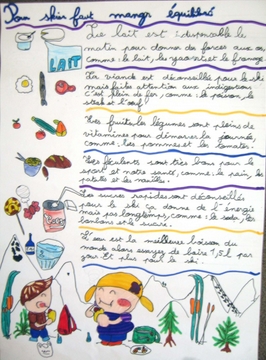 Pour skier faut manger équilibré
Le lait est indispensable le
matin pour donner de forces aux os,
comme : le lait, les yaourts et le fromage.
LAIT
La viande est déconseillé pour le ski
mais faire attention aux indigestions
c'est plein de fer, comme : le poisson, le
steak et l'œuf.
Les fruits et légumes sont pleins de
vitamines pour démarrer la journée,
comme : les pommes et les tomates.
Les féculents sont très bons pour le
sport et notre santé, comme : le pain, les
patates et les nouilles.
Les sucres rapides sont déconseillés
pour le ski ça donne de l'énergie
mais pas longtemps, comme : le soda, les
bonbons et le sucre.
L'eau est la meilleure boisson du
monde alors essayez de boire 1,5 l par
jour. Et plus pour le ski.